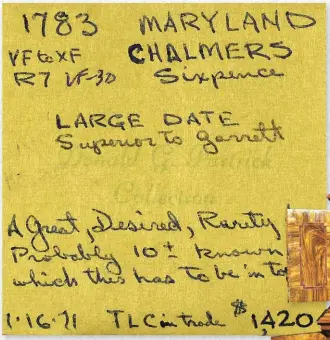 1783 MARYLAND
VF to XF CHALMERS
R7 VF-30 Sixpence
LARGE DATE
Superior to Garrett
Donald G. Partrick
Collection
A Great, Desired, Rarity
Probably 10± known
which this has to be in to
1·16·71 TLC in trade $1,420